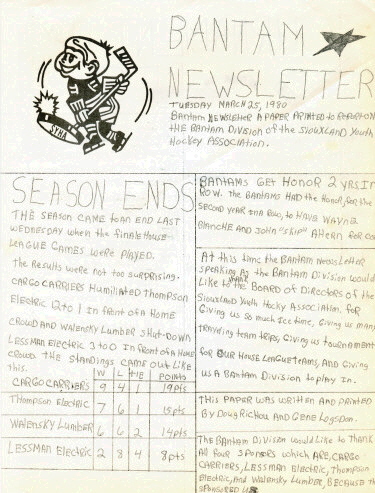 BANTAM
NEWSLETTER
TUESDAY MARCH 25, 1980
BANTAM NEWSLETTER A PAPER PRINTED TO REPORT ON
THE BANTAM DIVISION OF THE SIOUXLAND YOUTH
HOCKEY ASSOCIATION.
SYHA
SEASON ENDS
THE SEASON CAME TO AN END LAST
WEDNESDAY WHEN THE FINALE HOUSE
LEAGUE GAMES WERE PLAYED.
The Results were not too SURPRISING.
CARGO CARRIERS HUMILIATED Thompson
Electric 12 to 1 in front of a Home
CROWD AND WALENSKY LUMBER Shut-Down
LESSMAN ELECTRIC 3 TO 0 IN front of a Home
CROWD. THE STANDINGS CAME OUT Like
this.
W L TIE POINTS
CARGO CARRIERS 9 4 1 19pts
Thompson Electric 7 6 1 15pts
Walensky Lumber 6 6 2 14pts
LESSMAN Electric 2 8 4 8pts
BANTAMS GET HONOR 2 YRS IN
ROW. THE BANTAMS HAD THE HONOR, for the
SECOND YEAR IN A ROW, to HAVE WAYNE
BLANCHE AND JOHN "SKIP" AHERN FOR CO
At this time the BANTAM NEWSLETTER
SPEAKING AS the BANTAM DIVISION would
Like to thank the BOARD OF DIRECTORS of the
SIOUXLAND YOUTH HOCKEY ASSOCIATION. FOR
Giving us so much ice time, Giving us many
traveling team trips, Giving us tournament
for OUR HOUSE LEAGUE TEAMS, AND Giving
US A BANTAM DIVISION to PLAY IN.
THIS PAPER WAS WRITTEN AND PRINTED
BY DOUG RICHOU AND GENE LOGSDON.
THE BANTAM DIVISION WOULD Like to THANK
ALL FOUR SPONSERS WHICH ARE, CARGO
CARRIERS, LESSMAN Electric, Thompson
Electric, AND Walensky LUMBER, BECAUSE THEY
SPONSERED US